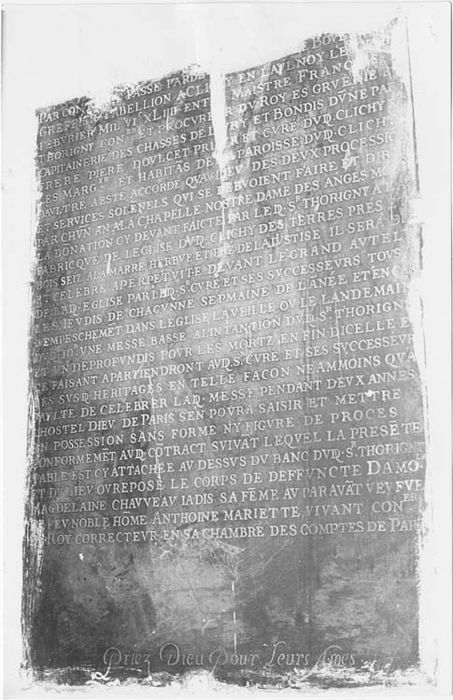 PAR CON PASSE PAR EN LAVLNOY LE
GREF TABELLION A CLI MAISTRE FRANC
FEBVRIER MIL VIc XLIII ENT DV ROY ES GRVERIE
THORIGNY CONer ET PROCVRE RY ET BONDIS DVNE PA
CAPITAINERIE DES CHASSES DE L CVRE DVD CLICHY
FRERE PIERE DOVLCET PRI PAROISSE DVD CLICH
LES MARGrs ET HABITAS DE DES DEVX PROCESSIO
DAVLTRE ABSTE ACCORDE QVAV DEBVOIENT FAIRE ET DIR
ET SERVICES SOLENELS QVI SE DAME DES ANGES
PAR CHVN AN A LA CHAPELLE NOSTRE Sr THORIGNY A L
LA DONATION CY DEVANT FAICTE PAR LED DES TERRES PRES
FABRICQVE DE LEGLISE DVD CLICHY IL SERA
BOIS SEIZ A LA MARRE HERBVE ET DE LA IVSTISE
ET CELEBRE A PERPETVITE DEVANT LE GRAND AVTEL
DE LAD EGLISE PAR LED Sr CVRE ET SES SVCCESSEVRS TOVS
LES IEVDIS DE CHACVNNE SEPMAINE DE LANEE ET EN CAS
DEMPESCHEMET DANS LEGLISE LA VEILLE OV LE LANDEMAIN
DVD IOr VNE MESSE BASSE A LINTANTION DVD Sr THORIGNY
VN DE PROFVNDIS POVR LES MORTZ EN FIN DICELLE E
FAISANT APARTIENDRONT AVD Sr CVRE ET SES SVCCESSEVR
LES SVSD HERITAGES EN TELLE FACON NEAMMOINS QVA
FAVLTE DE CELEBRER LAD MESSE PENDANT DEVX ANNES
LHOSTEL DIEV DE PARIS SEN POVRA SAISIR ET METTRE
POSSESSION SANS FORME NY FIGVRE DE PROCES
CONFORMEMET AVD COTRACT SVIVAT LEQVEL LA PRESETE
TABLE EST CY ATTACHEE AV DESSVS DV BANC DVD Sr THORIGNY
ET DV LIEV OV REPOSE LE CORPS DE DEFFVNCTE DAMO
MAGDELAINE CHAVVEAV IADIS SA FEME AVPARAVAT VEVFVE
FEV NOBLE HOME ANTHOINE MARIETTE VIVANT CONer
ROY CORRECTEVR EN SA CHAMBRE DES COMPTES DE PAR
Priez Dieu Pour Leurs Ames